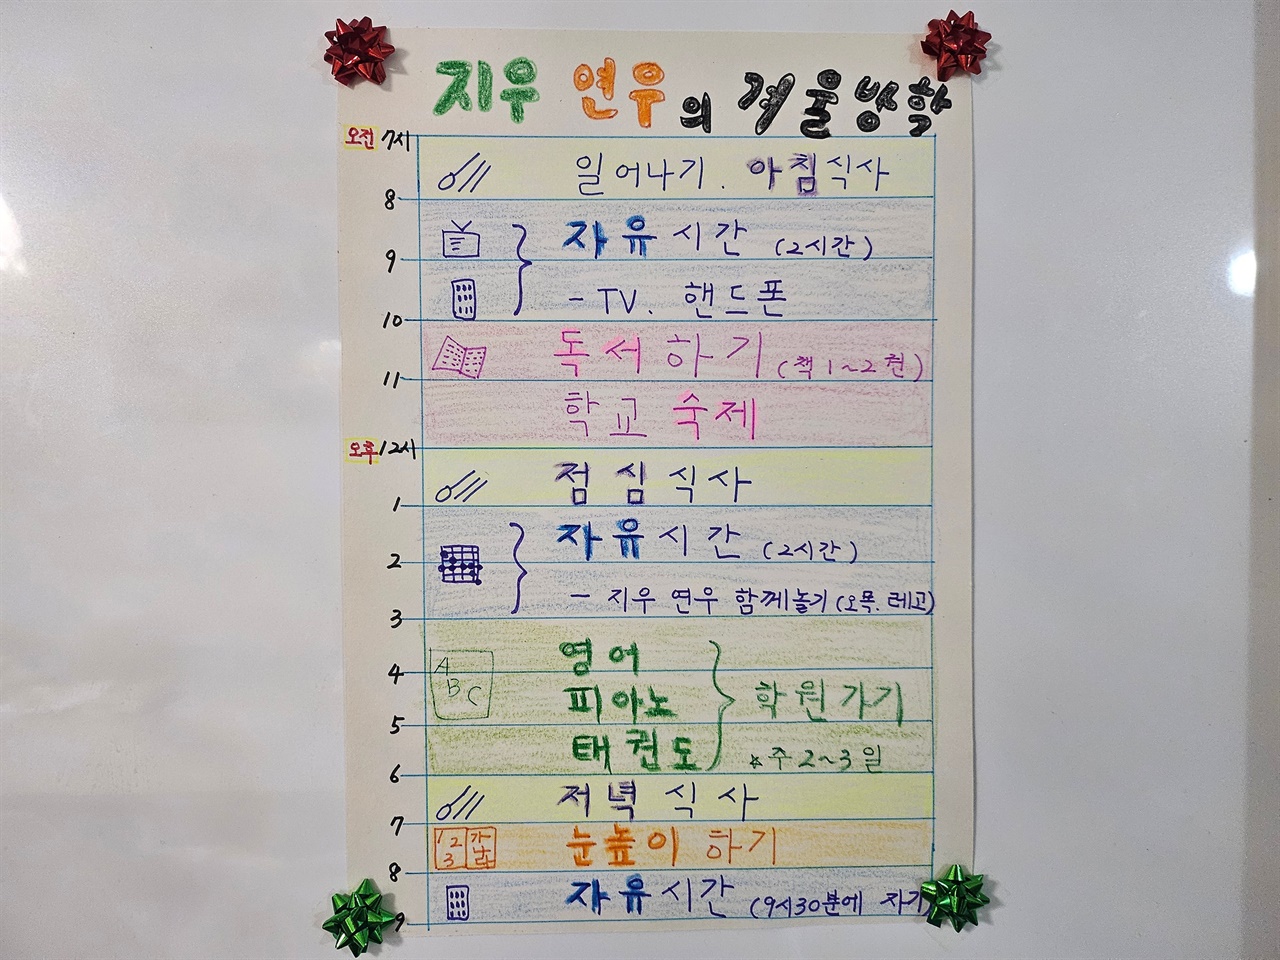 지우 연우의 겨울방학
오전 7시
일어나기. 아침식사
8
자유시간 (2시간)
9
- TV. 핸드폰
10
독서하기 (책 1~2권)
11
학교 숙제
오후 12시
점심식사
1
자유시간 (2시간)
2
- 지우 연우 함께놀기 (오목. 레고)
3
영어
A B C
4
피아노 학원가기
5
태권도 *주 2~3일
6
저녁식사
7
1 2 3 가 나 눈높이 하기
8
자유시간 (9시30분에 자기)
9